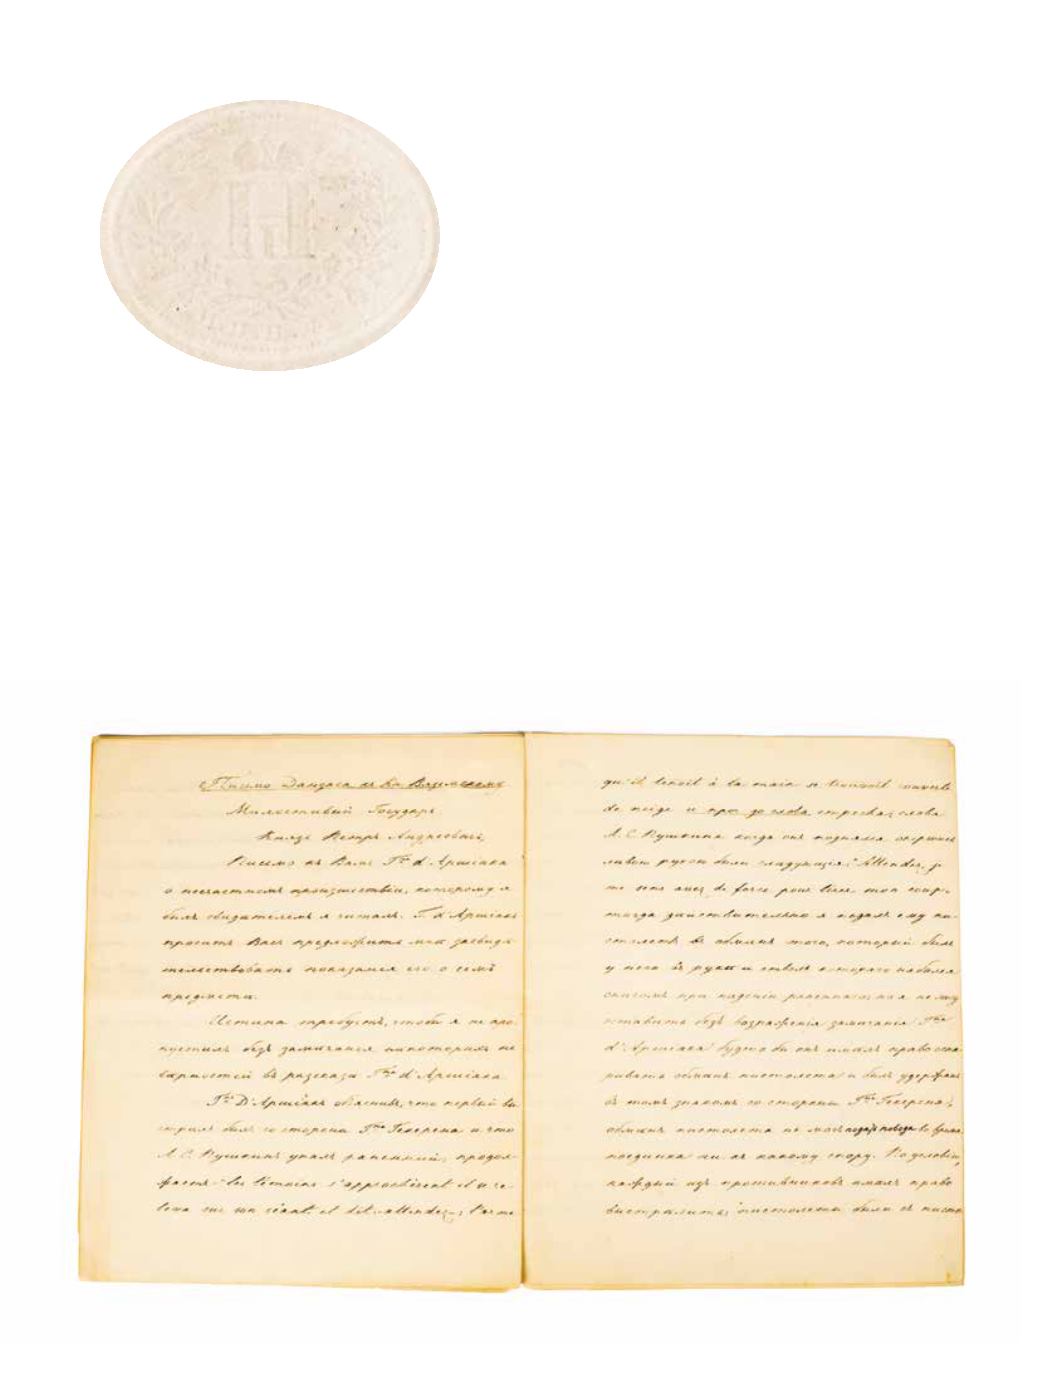 Н
Письмо Данзаса къ Кн Вяземскому
Милостивый Государь
Князь Петръ Андреевичь,
Письмо къ Вамъ Гна d'Аршіака
о несчастномъ происшествіи, которому я
былъ свидѣтелемъ я читалъ. Г. d'Аршіакъ
проситъ Васъ предложить мнѣ засвидѣ-
тельствовать показанія его о семъ
предметѣ.
Истина требуетъ, чтобъ я не про-
пустилъ безъ замѣчанія нѣкоторыя не
вѣрности въ разсказѣ Гна d'Аршіака
Гнъ D'Аршіакъ объяснивъ, что первый вы
стрѣлъ былъ со стороны Гна Гекерена и что
А. С. Пушкинъ упалъ раненный, продол-
жаетъ: les témoins s'approchèrent il se re-
leva sur son séant et dit: attendez; l'arme
qu'il tenoit à la main se trouvoit couverte
de neige и
А. С. Пушкина когда онъ поднялся опершись
лѣвою рукою были слѣдующія: Attendez, je
me sens assez de force pour tirer mon coup-
тогда дѣйствительно я подалъ ему пи-
столетъ въ обмѣнъ того, который былъ
у него въ рукѣ и стволъ котораго набился
снѣгомъ при паденіи раненнаго; но я не могу
оставить безъ возраженія замѣчанія Гна
d'Аршіака будто бы онъ имѣлъ право оспа-
ривать обмѣнъ пистолета и былъ удержанъ
въ томъ знакомъ со стороны Гна Гекерена;
обмѣнъ пистолета не могъ подать повода во время
поединка ни къ какому спору. По условію,
каждый изъ противниковъ имѣлъ право
выстрѣлить; пистолеты были съ писто